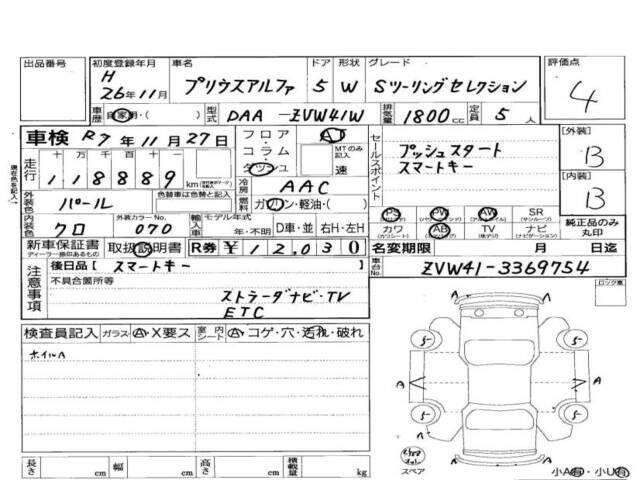 出品番号 初度登録年月 車名 ドア 形状 グレード 評価点
H 26年11月 プリウスアルファ 5 W Sツーリングセレクション 4
車歴 自家用・( ) 型式 DAA-ZVW41W 排気量 1800cc 定員 5人
車検 R7年11月27日 フロア・コラム・ダッシュ AT MTのみ記入 速
セールスポイント プッシュスタート スマートキー
[外装] B
[内装] B
現在色を記入→
走行 十万千百十一 118889 km
冷房 AAC
外装色 パール 色替車は色替と記入
燃料 ガソリン・軽油・( )
PS PW AW SR
(パワーウィンドウ) (サンルーフ)
内装色 クロ 外装カラーNo. 070 輸入車 モデル年式 年・不明 D車・並 右H・左H
カワ AB TV ナビ
(カワシート) (エアバッグ) (ナビゲーション)
純正品のみ丸印
新車保証書 ディーラー捺印あるもの 取扱説明書 R券 ¥12,030 名変期限 月 日迄
注意事項 後日品[スマートキー ] 車台No. ZVW41-3369754
不具合箇所等
ロック車
ストラーダナビ・TV
ETC
検査員記入 ガラス A・X要ス 室内シート A・コゲ・穴・汚れ・破れ
ホイルA
5 5
A A A
5 5
スペア
長さ cm 幅 cm 高さ cm 積載量 kg
小A有・小U有